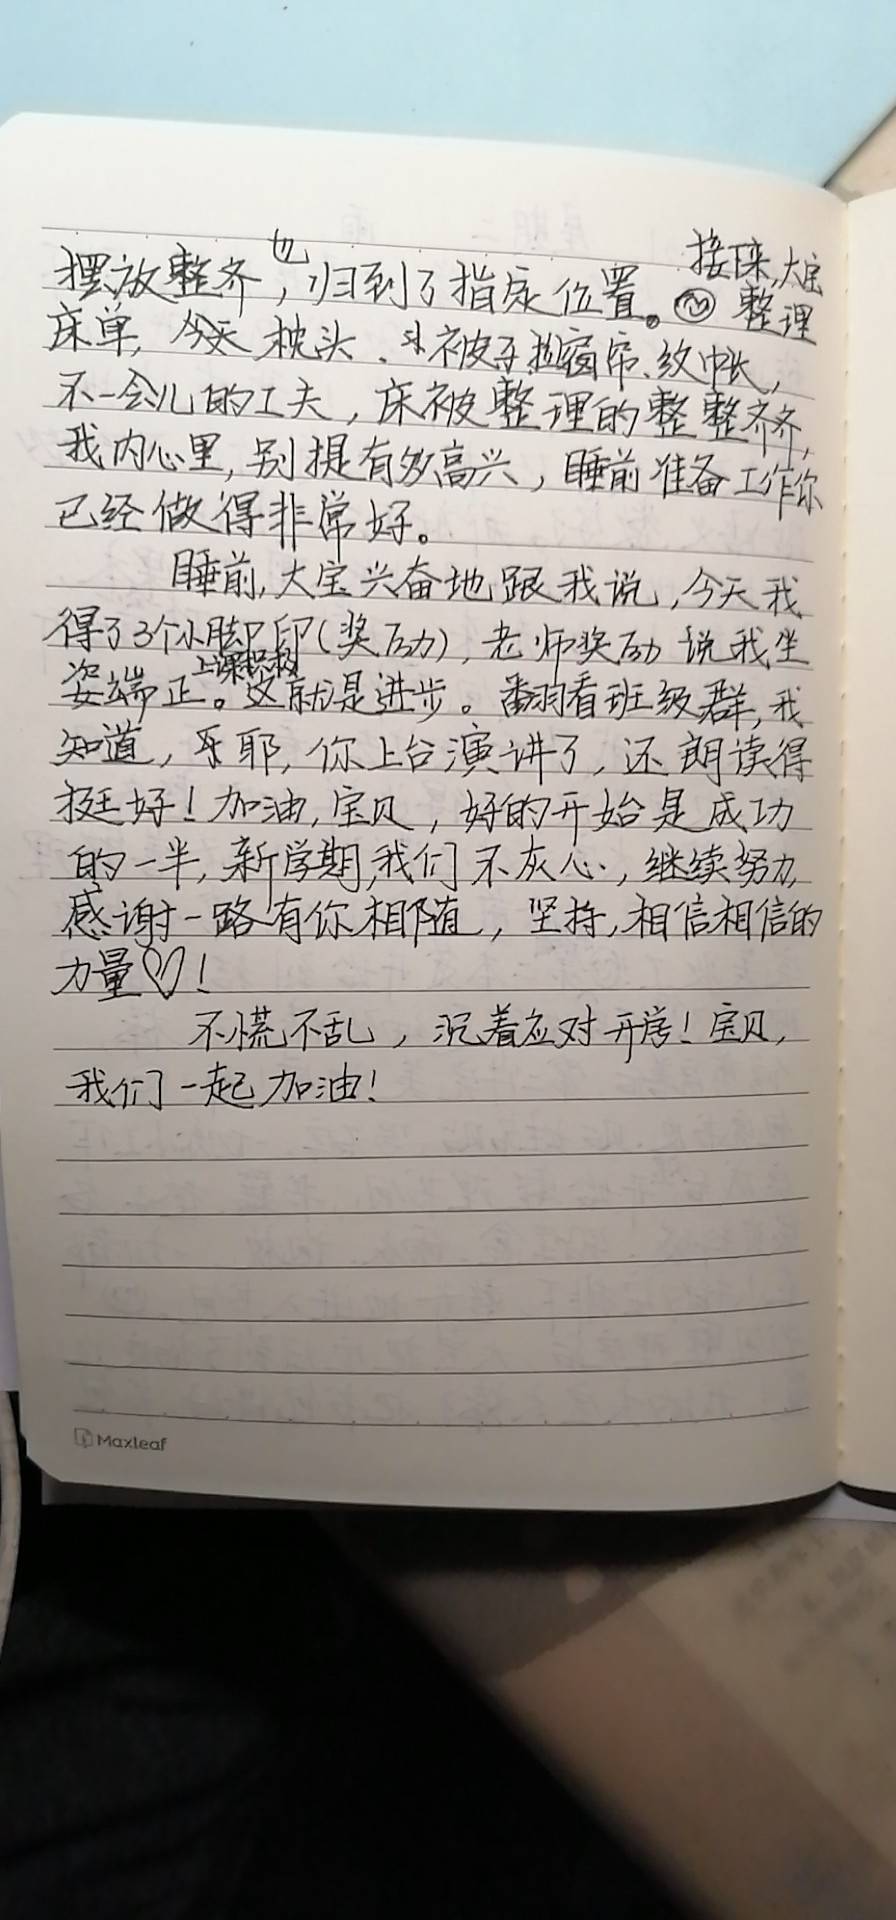 摆放整齐,也归到了指定位置。接下来,大宝整理
床单,今天枕头、被子拉窗帘、纹帐,
不一会儿的工夫,床被整理的整整齐齐,
我内心里,别提有多高兴,睡前准备工作你
已经做得非常好。
睡前,大宝兴奋地跟我说,今天我
得了3个小脚印(奖励),老师奖励说我坐
姿端正。上课积极 这就是进步。翻看班级群,我
知道,牙耶,你上台演讲了,还朗读得
挺好!加油,宝贝,好的开始是成功
的一半,新学期,我们不灰心,继续努力,
感谢一路有你相随,坚持,相信相信的
力量♡!
不慌不乱,沉着应对开学!宝贝,
我们一起加油!
Maxleaf